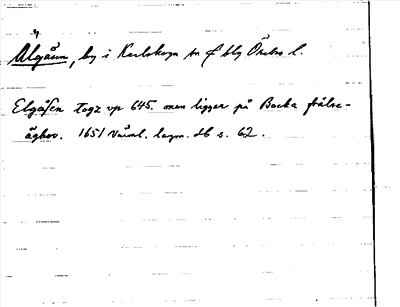 Älgåsen, by i Karlskoga sn o bg Örebro l.
Elgåsen togz vp 645 men ligger på Bocka frälse-
äghor. 1651 Värml. lagm. db s. 62.